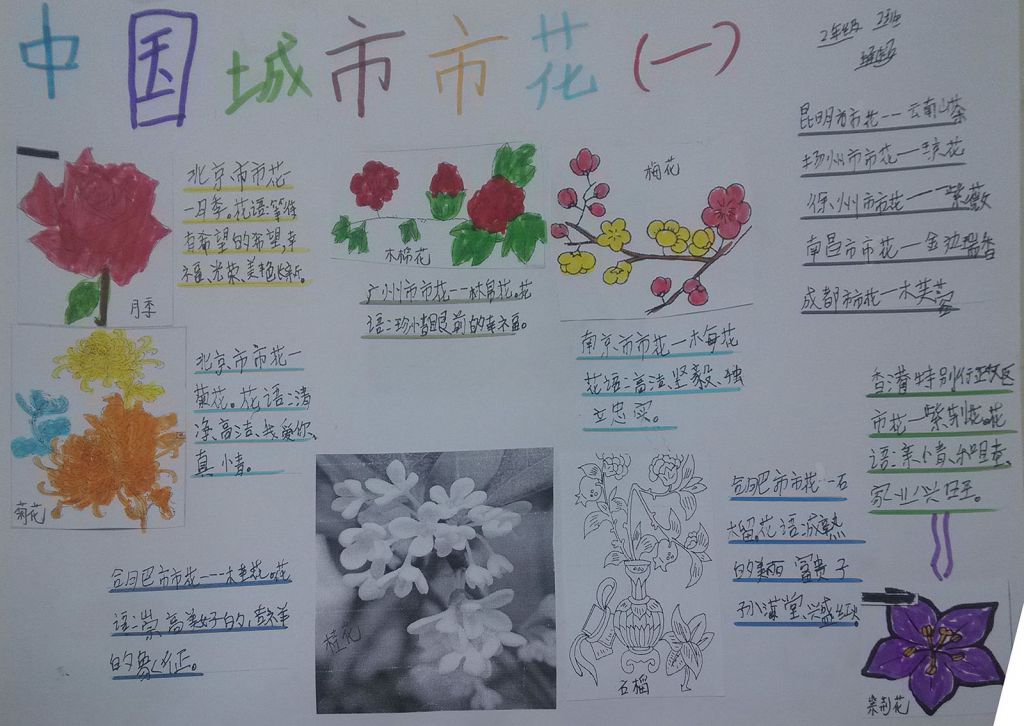 中国城市市花(一)
2年级 2班
北京市市花
一月季。花语:等待
有希望的希望,幸
福、光荣、美艳长新。
月季
木棉花
广州市市花--木棉花。花
语:珍惜眼前的幸福。
梅花
南京市市花一梅花
花语:高洁、坚毅、独
立忠实。
昆明市市花--云南山茶
扬州市市花一琼花
徐州市市花一紫薇
南昌市市花一金边瑞香
成都市市花一木芙蓉
北京市市花一
菊花。花语:清
净、高洁、我爱你、
真情。
菊花
香港特别行政区
市花一紫荆花。花
语:亲情、和睦、
家业兴旺。
合肥市市花一石
榴。花语:成熟
的美丽 富贵 子
孙满堂、兴盛红火
合肥市市花---木圭花。花
语:崇高美好的,吉祥
的象征。
桂花
石榴
紫荆花